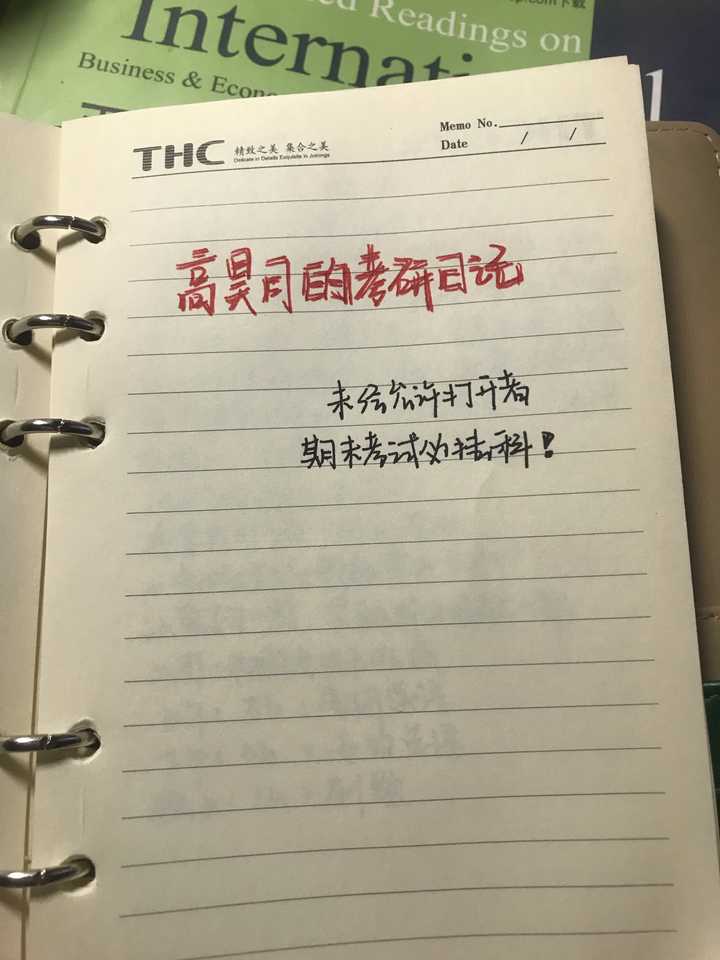 p.com下载
ed Readings on
Internati l
Business & Econo
THC 精致之美 集合之美
Delicate in Details Exquisite in Joinings
Memo No.
Date / /
高昊月的考研日记
未经允许打开者
期末考试必挂科！